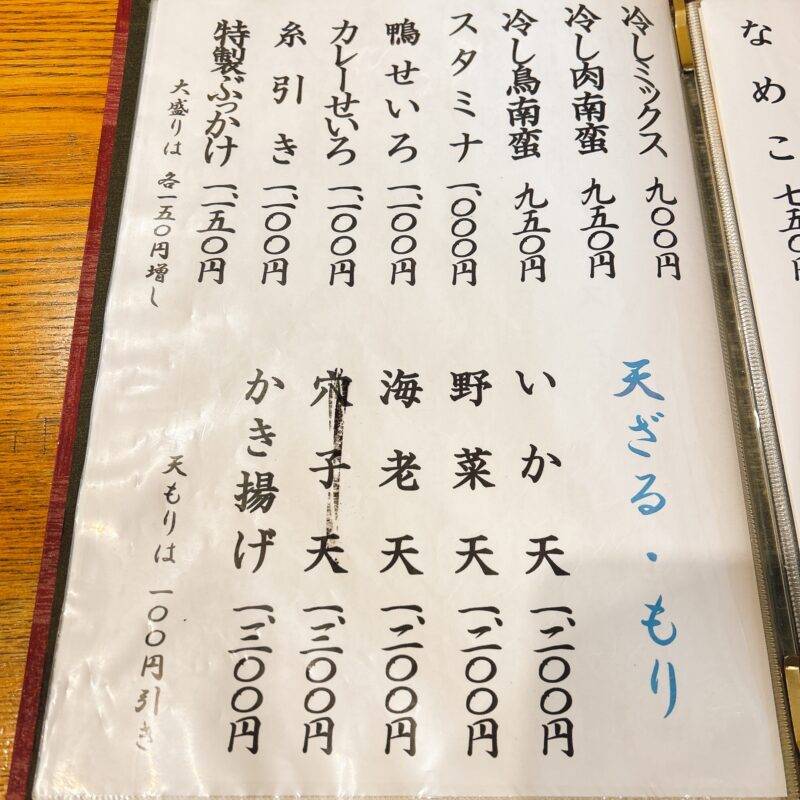 なめこ 七五〇円
冷しミックス 九〇〇円
冷し肉南蛮 九五〇円
冷し鳥南蛮 九五〇円
スタミナ 一、〇〇〇円
鴨せいろ 一、一〇〇円
カレーせいろ 一、一〇〇円
糸引き 一、一〇〇円
特製ぶっかけ 一、一五〇円
大盛りは 各一五〇円増し
天ざる・もり
いか天 一、二〇〇円
野菜天 一、二〇〇円
海老天 一、二〇〇円
穴子天 一、三〇〇円
かき揚げ 一、三〇〇円
天もりは 一〇〇円引き